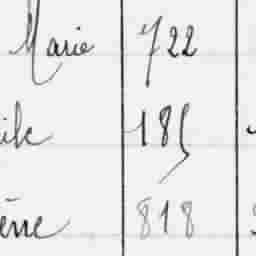 Marie 722
ile 185
ène 818